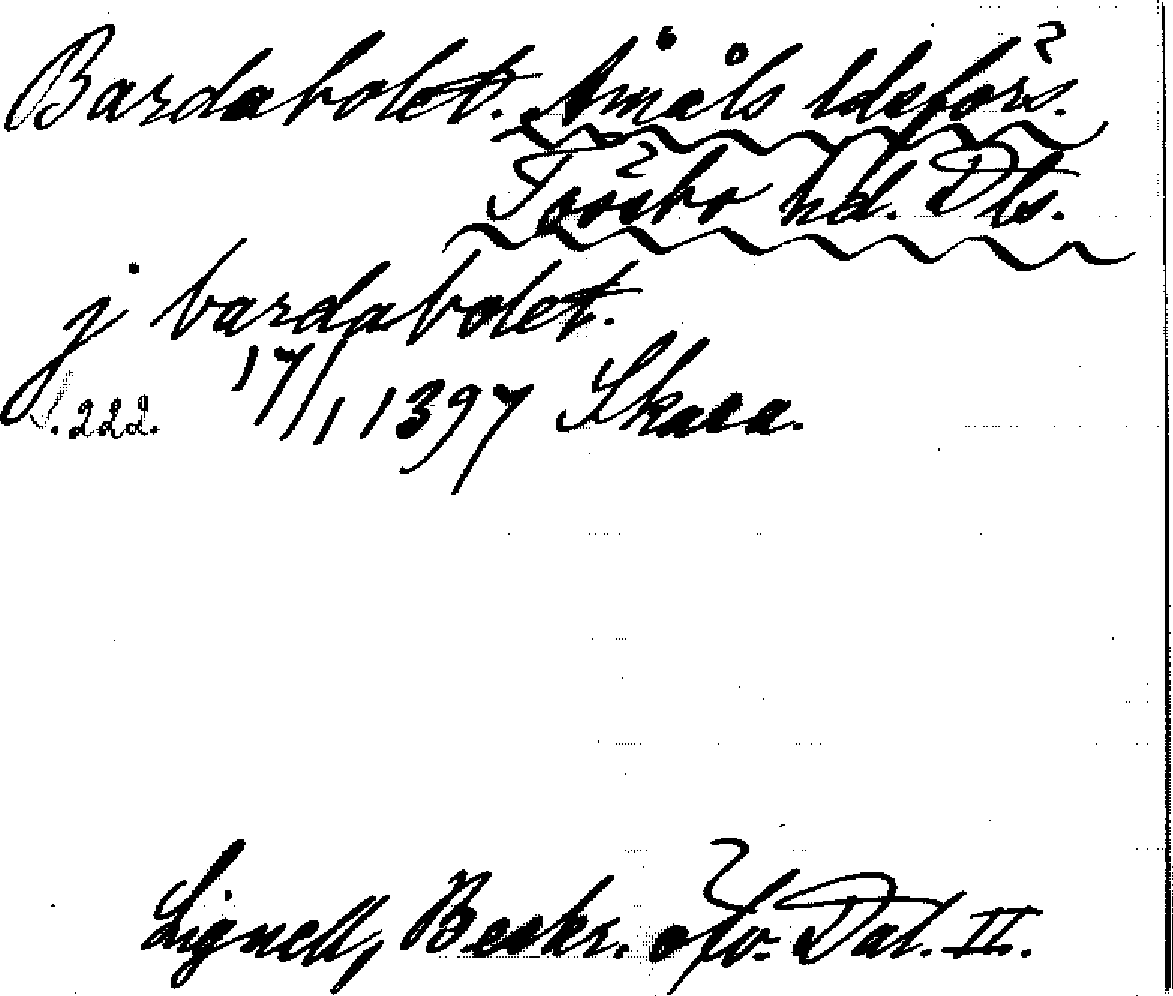 Bardabolet. Åmåls ldsförs.
Tössbo hd. Dls.
j bardabolet.
S. 222. 17/1 1397 Skara.
Lignell, Beskr. öfv. Dal. II.